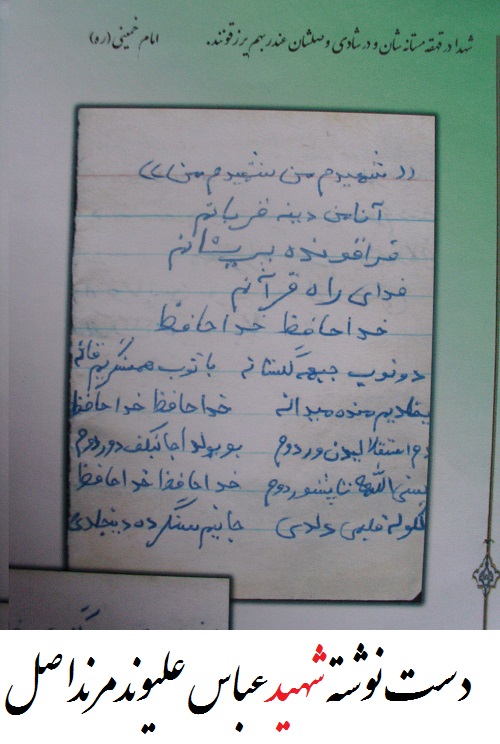 شهدا در قهقهه مستانه‌شان و در شادی وصلشان عند ربهم یرزقونند. امام خمینی (ره)
(( شهیدم من شهیدم من ))
آنامن دینه قربانم
قراقونده پریشانم
فدای راه قرآنم
خداحافظ خداحافظ
دونوب جبهه گلستانه باتوب همسنگریم قانه
خداحافظ خداحافظ
دم استقلالیدن وردوم بو یولدا جانیمی دوردوم
خداحافظ خداحافظ
گلوله قلبمی دلدی جانیم سنگرده دینجلدی
دست نوشته شهید عباس علیوند مرند اصل